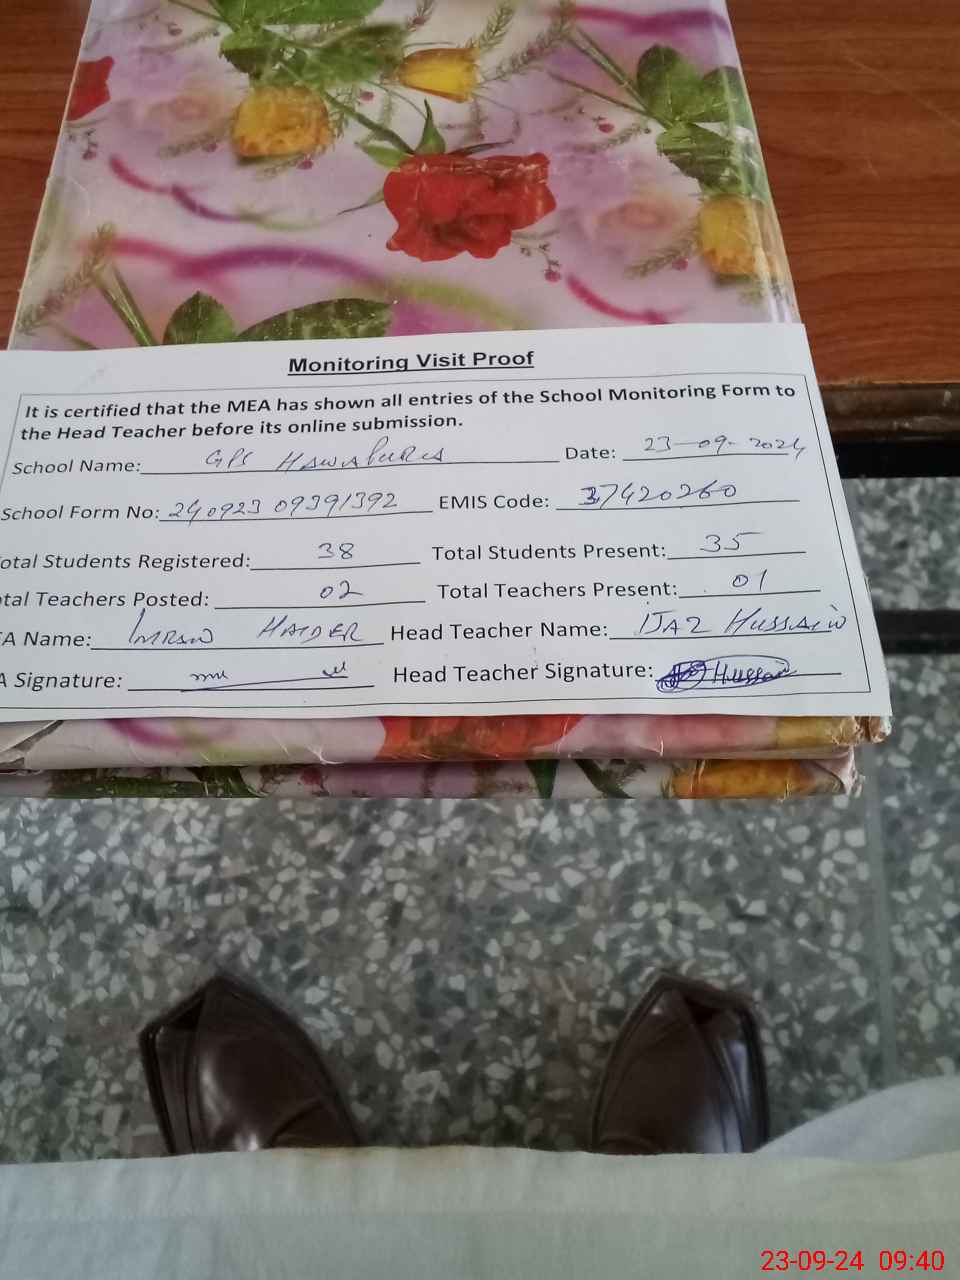 Monitoring Visit Proof
It is certified that the MEA has shown all entries of the School Monitoring Form to
the Head Teacher before its online submission.
School Name: GPS HAWAPURA Date: 23-09-2024
School Form No: 240923 09391392 EMIS Code: 37420260
otal Students Registered: 38 Total Students Present: 35
tal Teachers Posted: 02 Total Teachers Present: 01
A Name: IMRAN HAIDER Head Teacher Name: IJAZ HUSSAIN
A Signature: Head Teacher Signature: Hussain
23-09-24 09:40